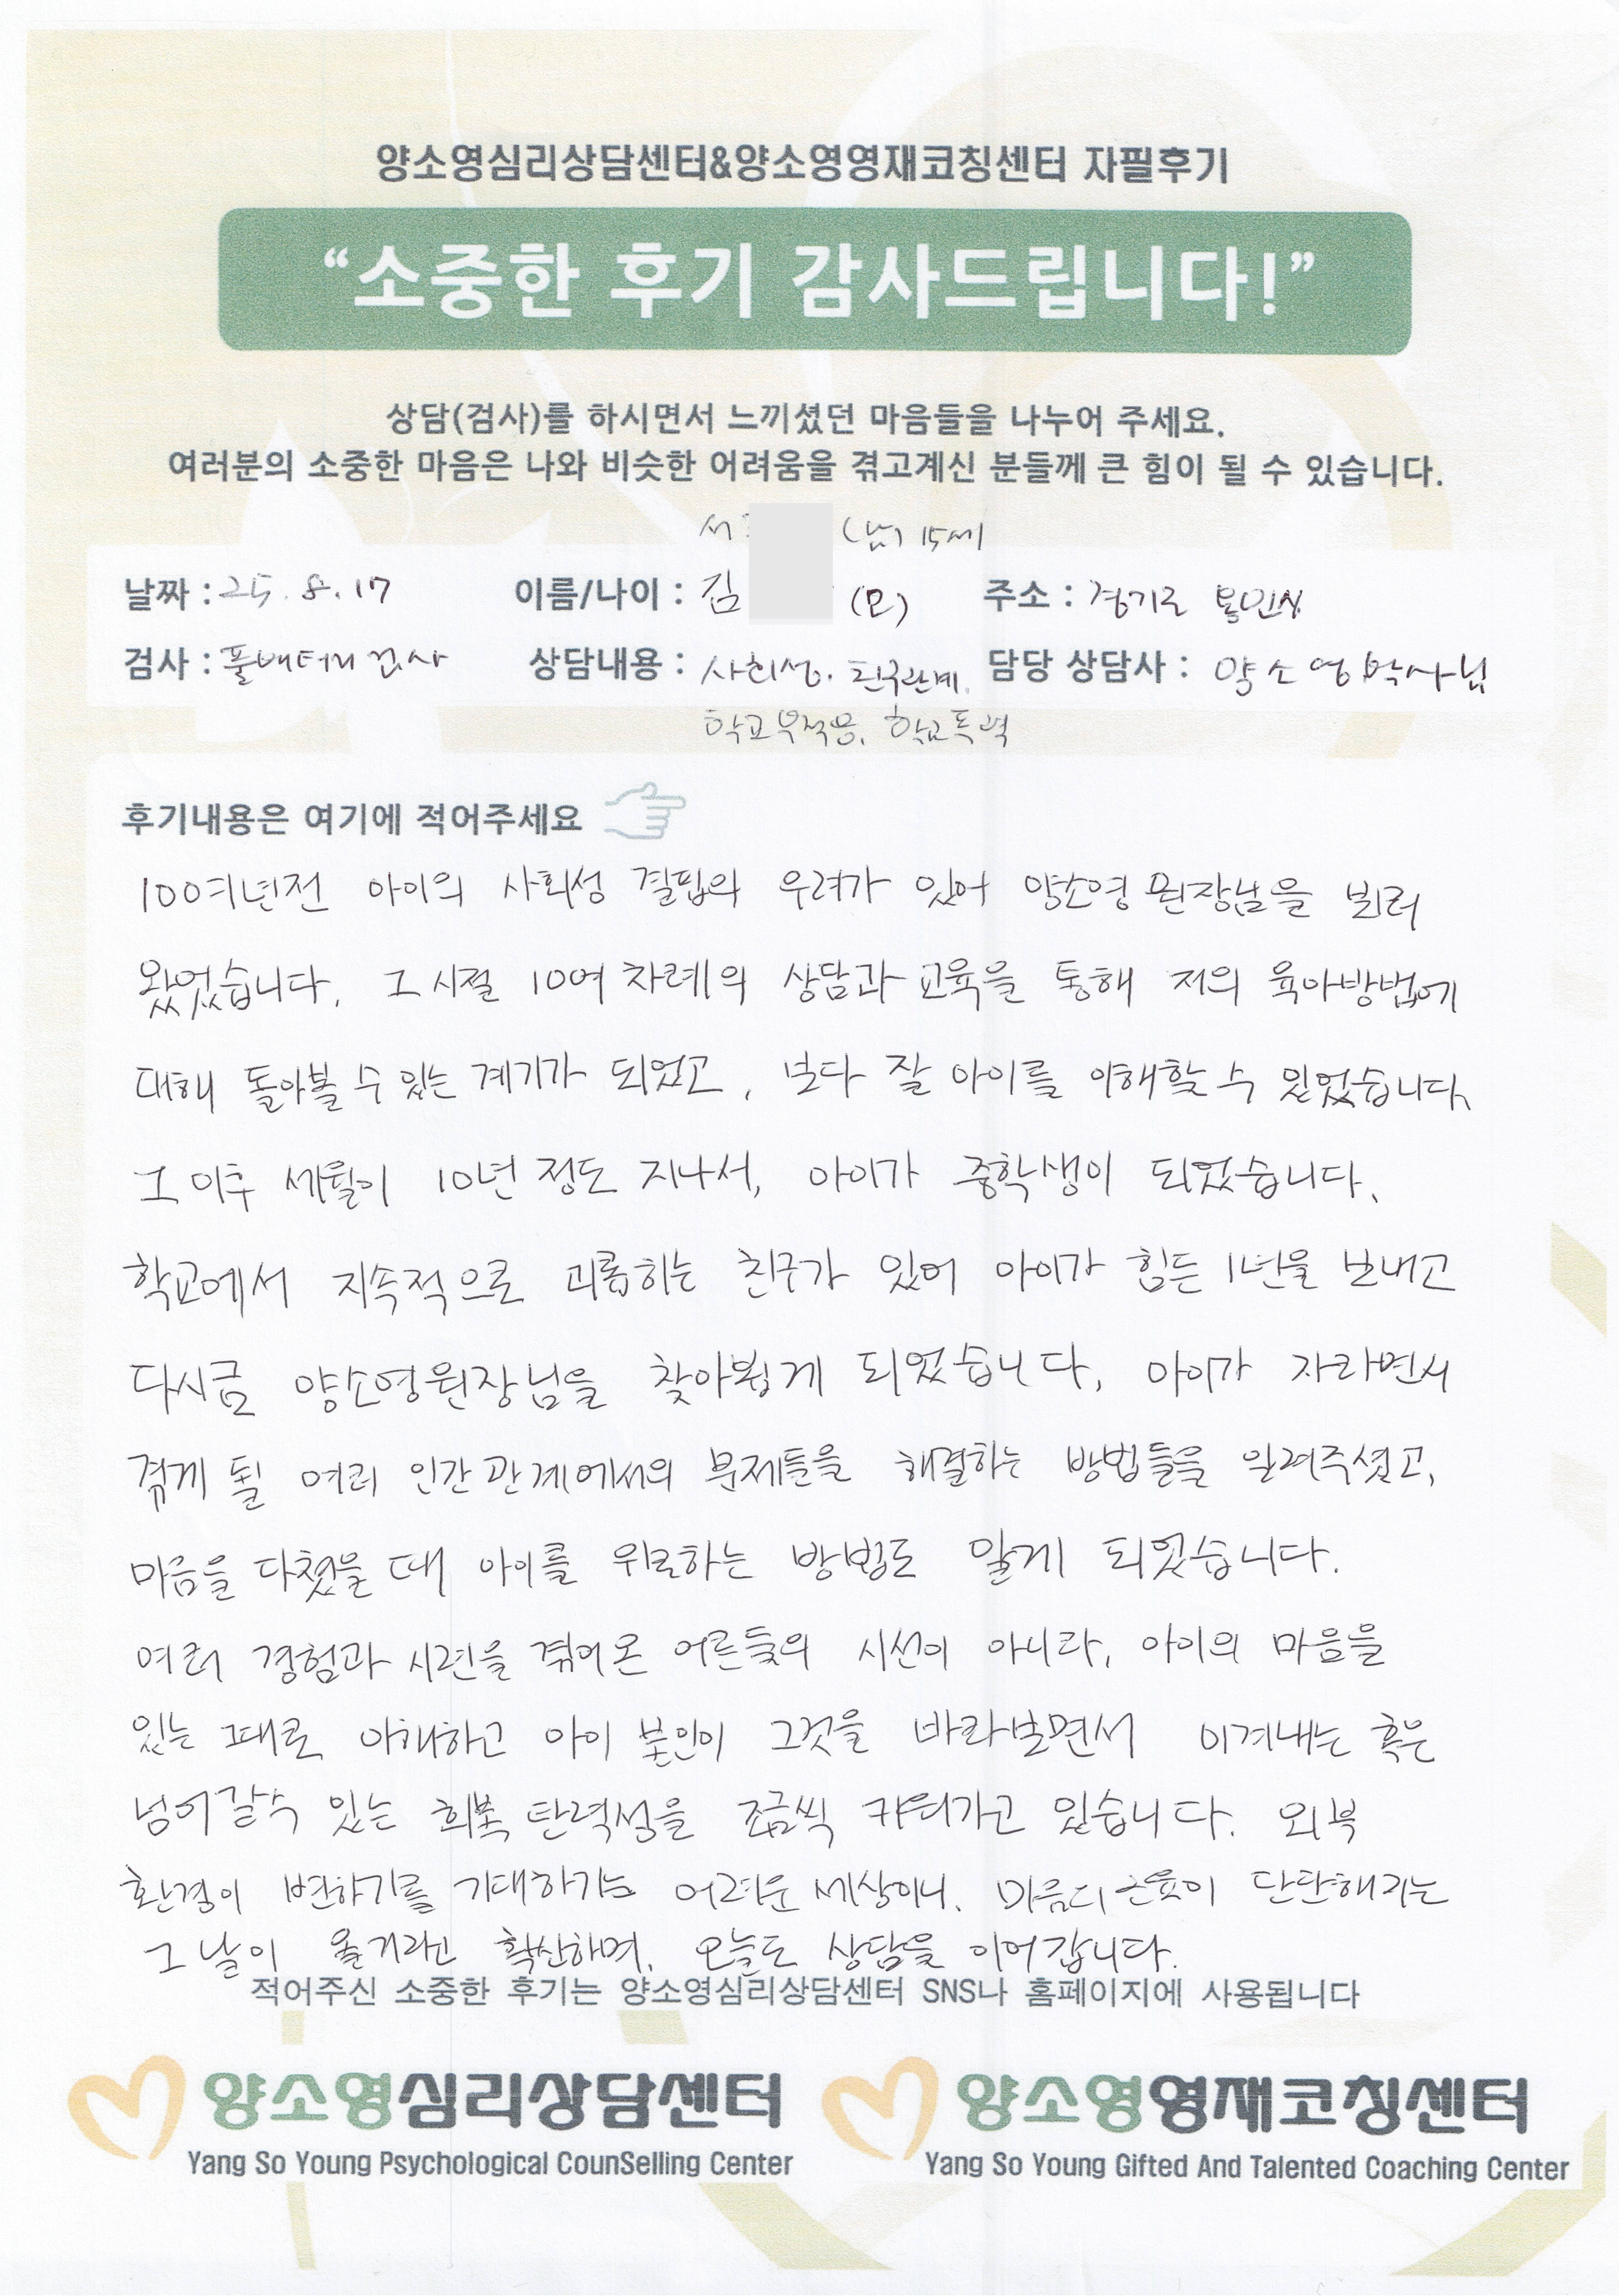 양소영심리상담센터&양소영영재코칭센터 자필후기
“소중한 후기 감사드립니다!”
상담(검사)를 하시면서 느끼셨던 마음들을 나누어 주세요.
여러분의 소중한 마음은 나와 비슷한 어려움을 겪고계신 분들께 큰 힘이 될 수 있습니다.
서 (남) 15세
날짜 : 25. 8. 17 이름/나이 : 김 (모) 주소 : 경기도 용인시
검사 : 풀배터리 검사 상담내용 : 사회성. 친구관계. 담당 상담사 : 양소영 박사님
학교부적응, 학교폭력
후기내용은 여기에 적어주세요
100여년전 아이의 사회성 결핍의 우려가 있어 양소영 원장님을 뵈러
왔었습니다. 그 시절 10여 차례의 상담과 교육을 통해 저의 육아방법에
대해 돌아볼 수 있는 계기가 되었고, 보다 잘 아이를 이해할 수 있었습니다.
그 이후 세월이 10년 정도 지나서, 아이가 중학생이 되었습니다.
학교에서 지속적으로 괴롭히는 친구가 있어 아이가 힘든 1년을 보내고
다시금 양소영원장님을 찾아뵙게 되었습니다. 아이가 자라면서
겪게 될 여러 인간관계에서의 문제들을 해결하는 방법들을 알려주셨고,
마음을 다쳤을 때 아이를 위로하는 방법도 알게 되었습니다.
여러 경험과 시련을 겪어온 어른들의 시선이 아니라, 아이의 마음을
있는 그대로 이해하고 아이 본인이 그것을 바라보면서 이겨내는 혹은
넘어갈수 있는 회복 탄력성을 조금씩 키워가고 있습니다. 외부
환경이 변하기를 기대하기는 어려운 세상이니. 마음의 근육이 단단해지는
그 날이 올거라고 확신하며, 오늘도 상담을 이어갑니다.
적어주신 소중한 후기는 양소영심리상담센터 SNS나 홈페이지에 사용됩니다
양소영심리상담센터 양소영영재코칭센터
Yang So Young Psychological CounSelling Center Yang So Young Gifted And Talented Coaching Center